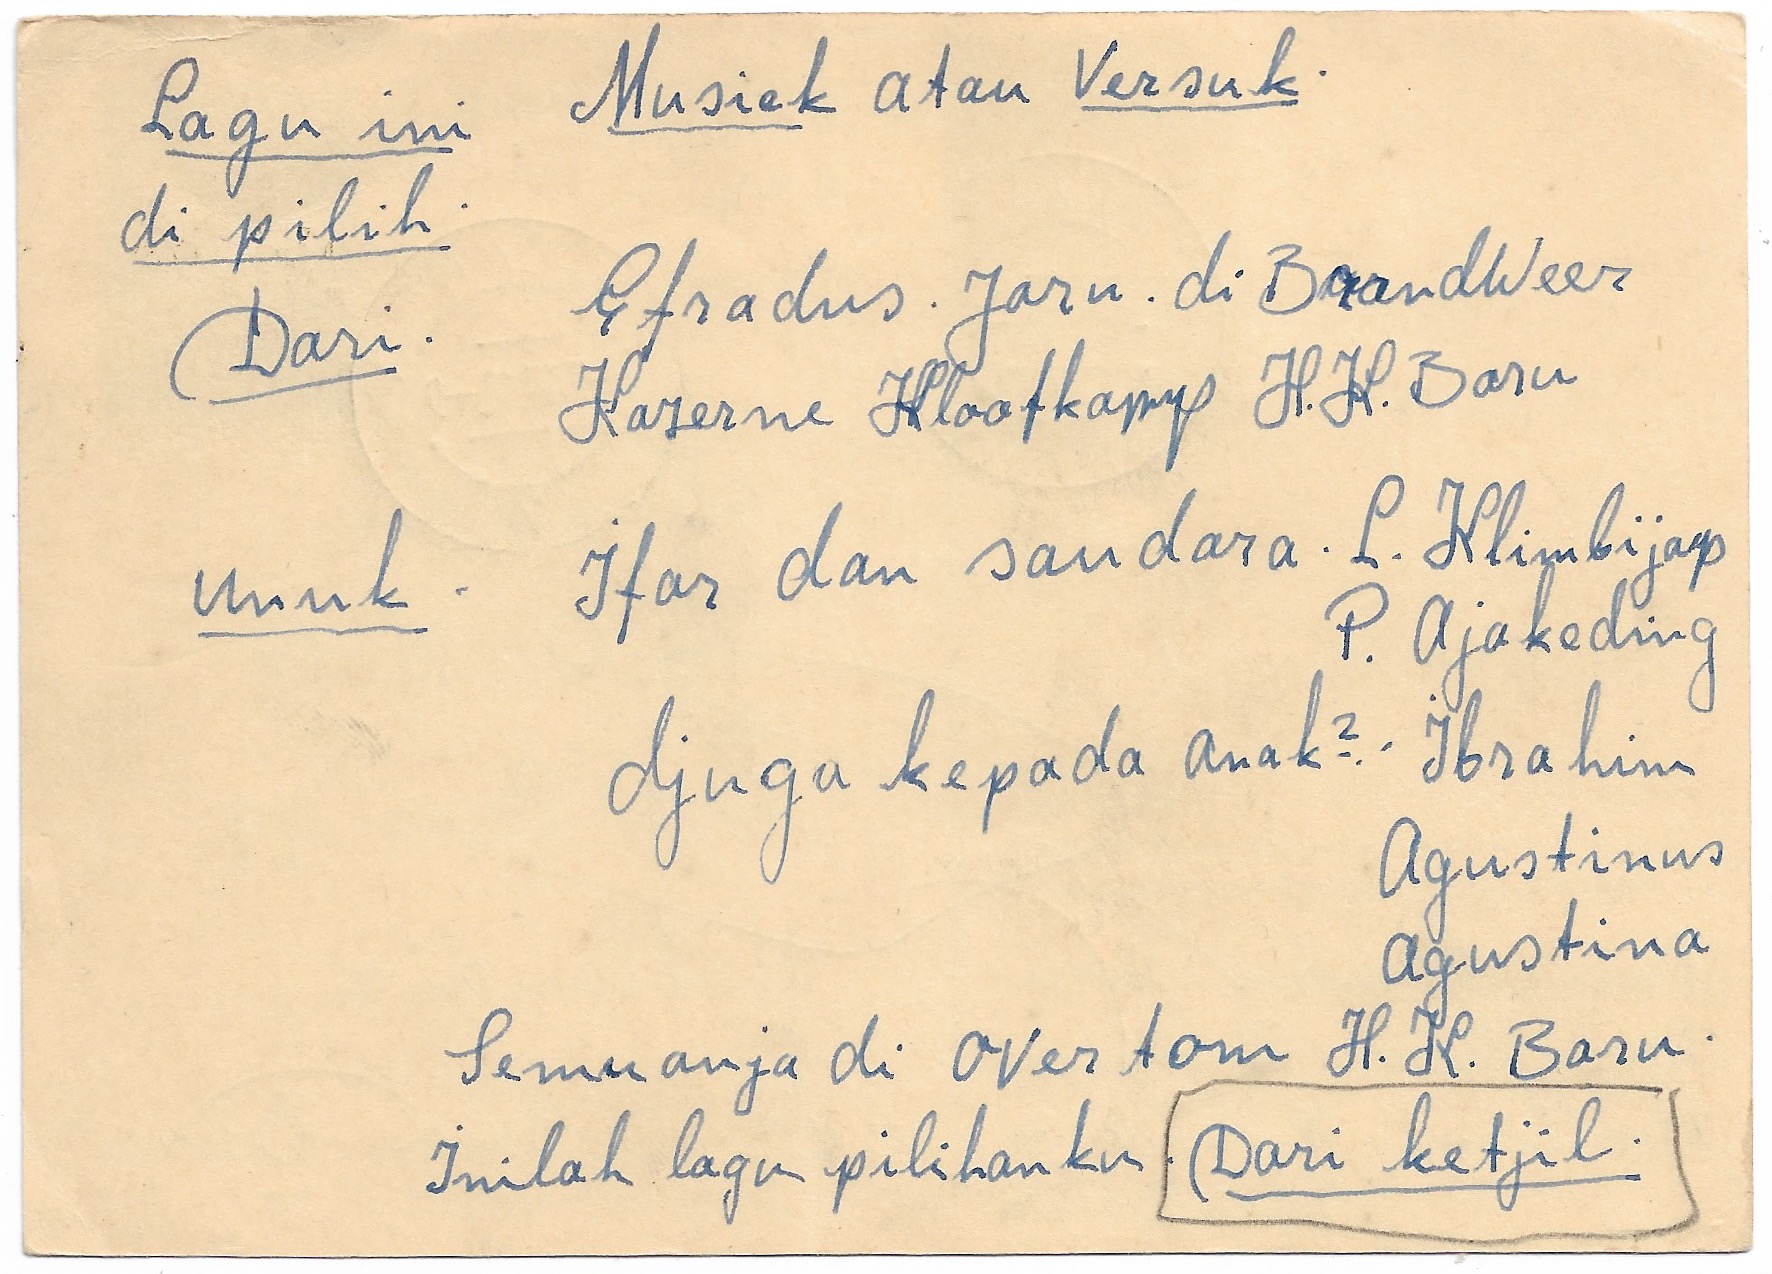 Lagu ini Musiek atau Versuk.
di pilih.
Dari. Efradus. Jaru. di BrandWeer
Kazerne Kloofkamp H.K. Baru
Unuk - Ifar dan saudara. L. Klimbijaap
P. Ajakeding
djuga kepada anak2. Ibrahim
Agustinus
Agustina
Semuanja di overtom H.K. Baru.
Inilah lagu pilihanku. Dari ketjil.